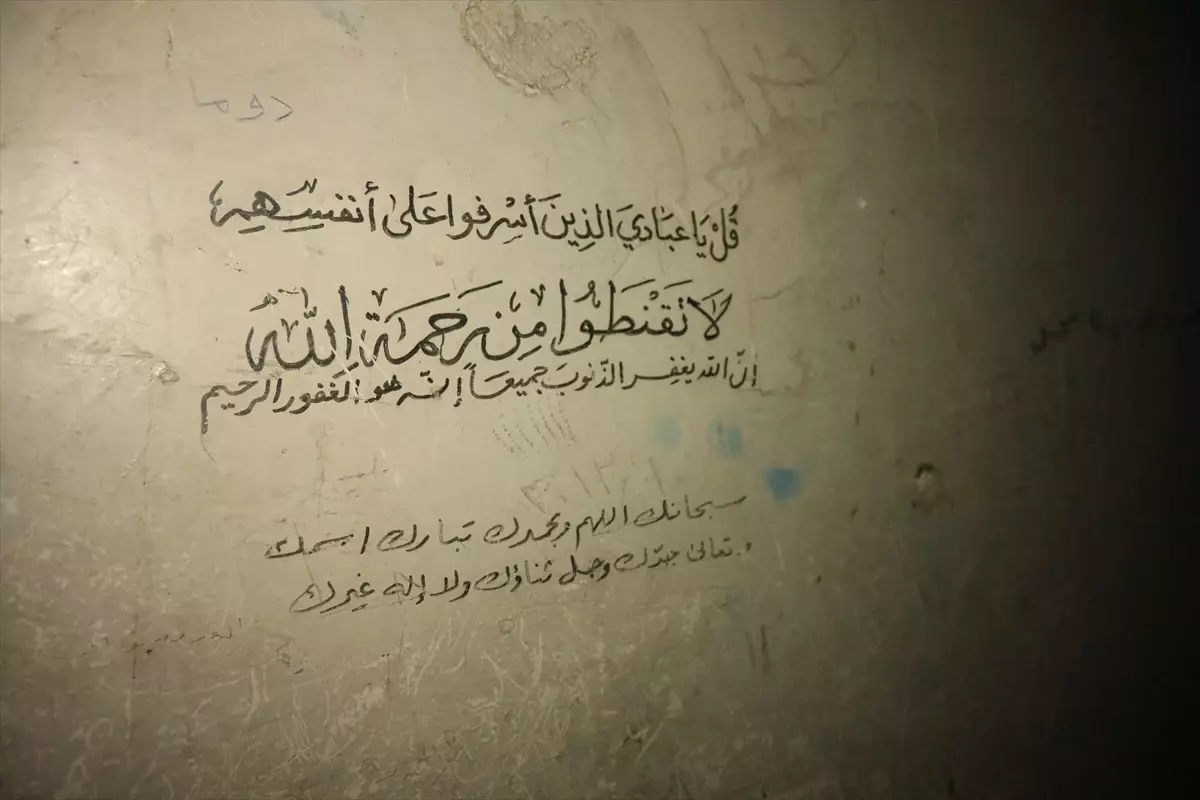 دوما
قُلْ يَا عبَاديَ الذِينَ أَسْرفوا عَلىٰ أنفسِهِم
لَا تَقْنَطُوا مِن رَحمَة اِللّٰه
إنّ الله يغفِر الذّنوبَ جميعَاً إنّه هو الغفور الرحيم
سبحانك اللهم وبحمدك تبارك اسمك
وتعالى جدّك وجل ثناؤك ولا إله غيرك